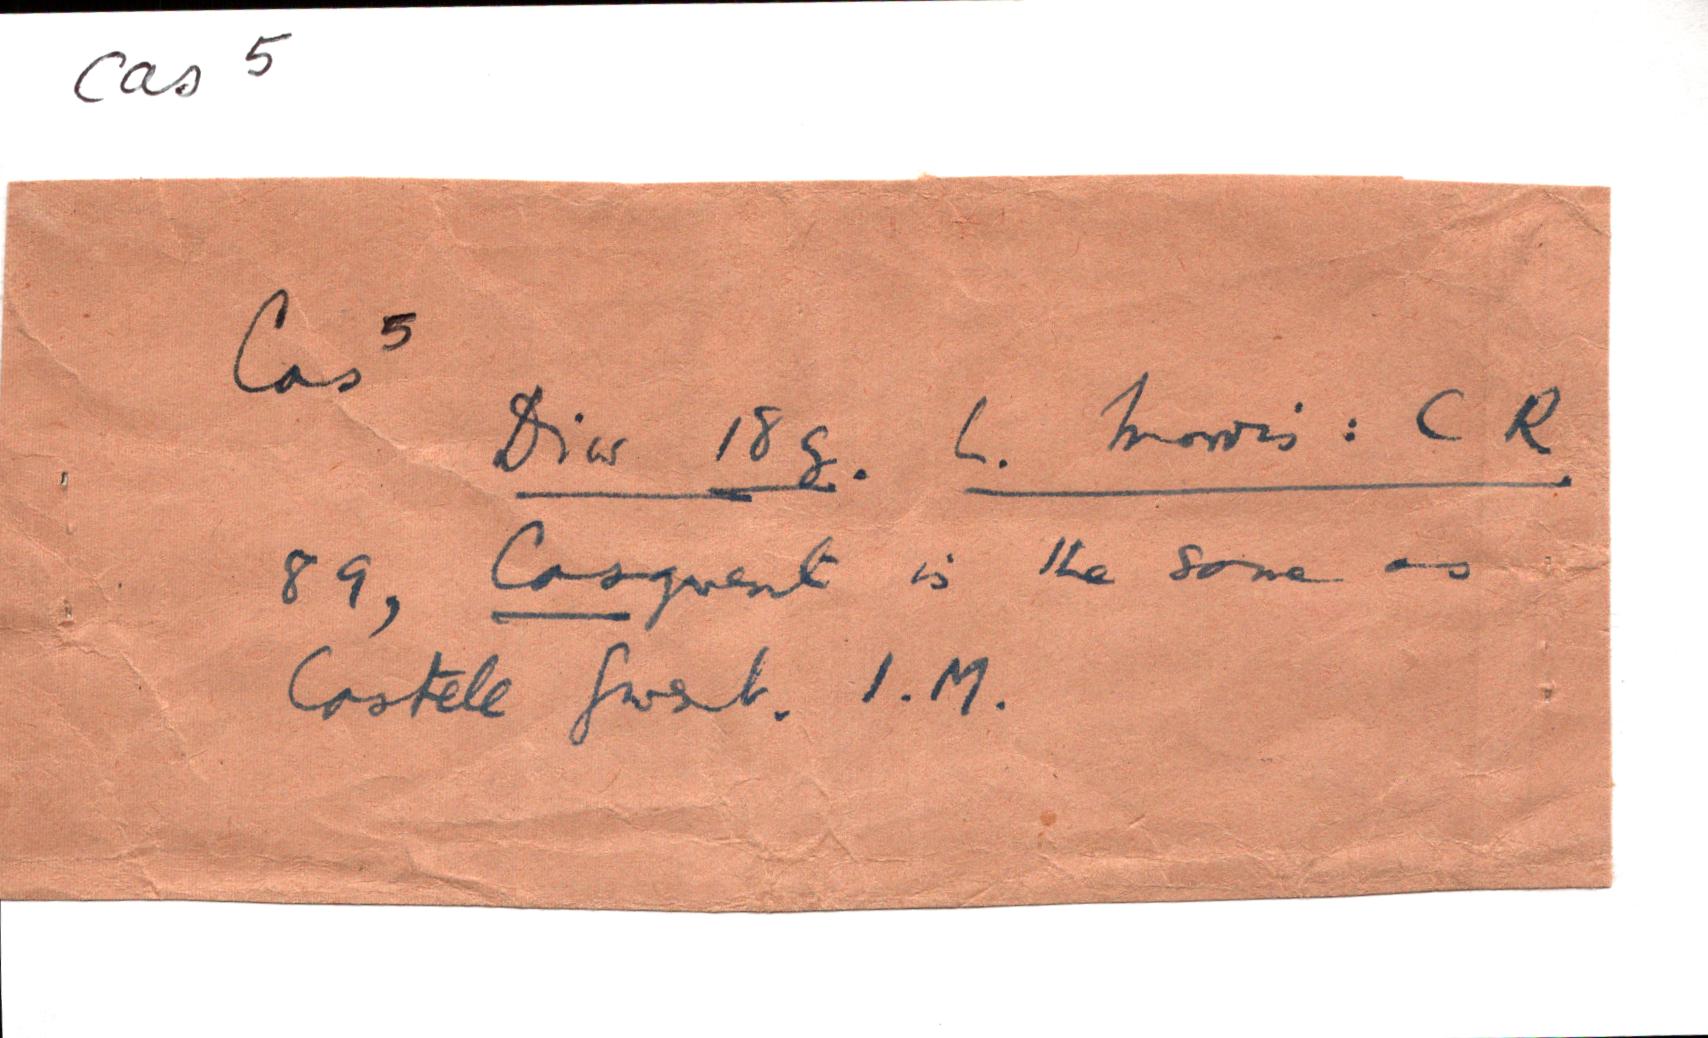 Cas 5
Cas 5
Diw 18g. L. Morris: C R
89, Casgwent is the same as
Castell Gwent. I.M.